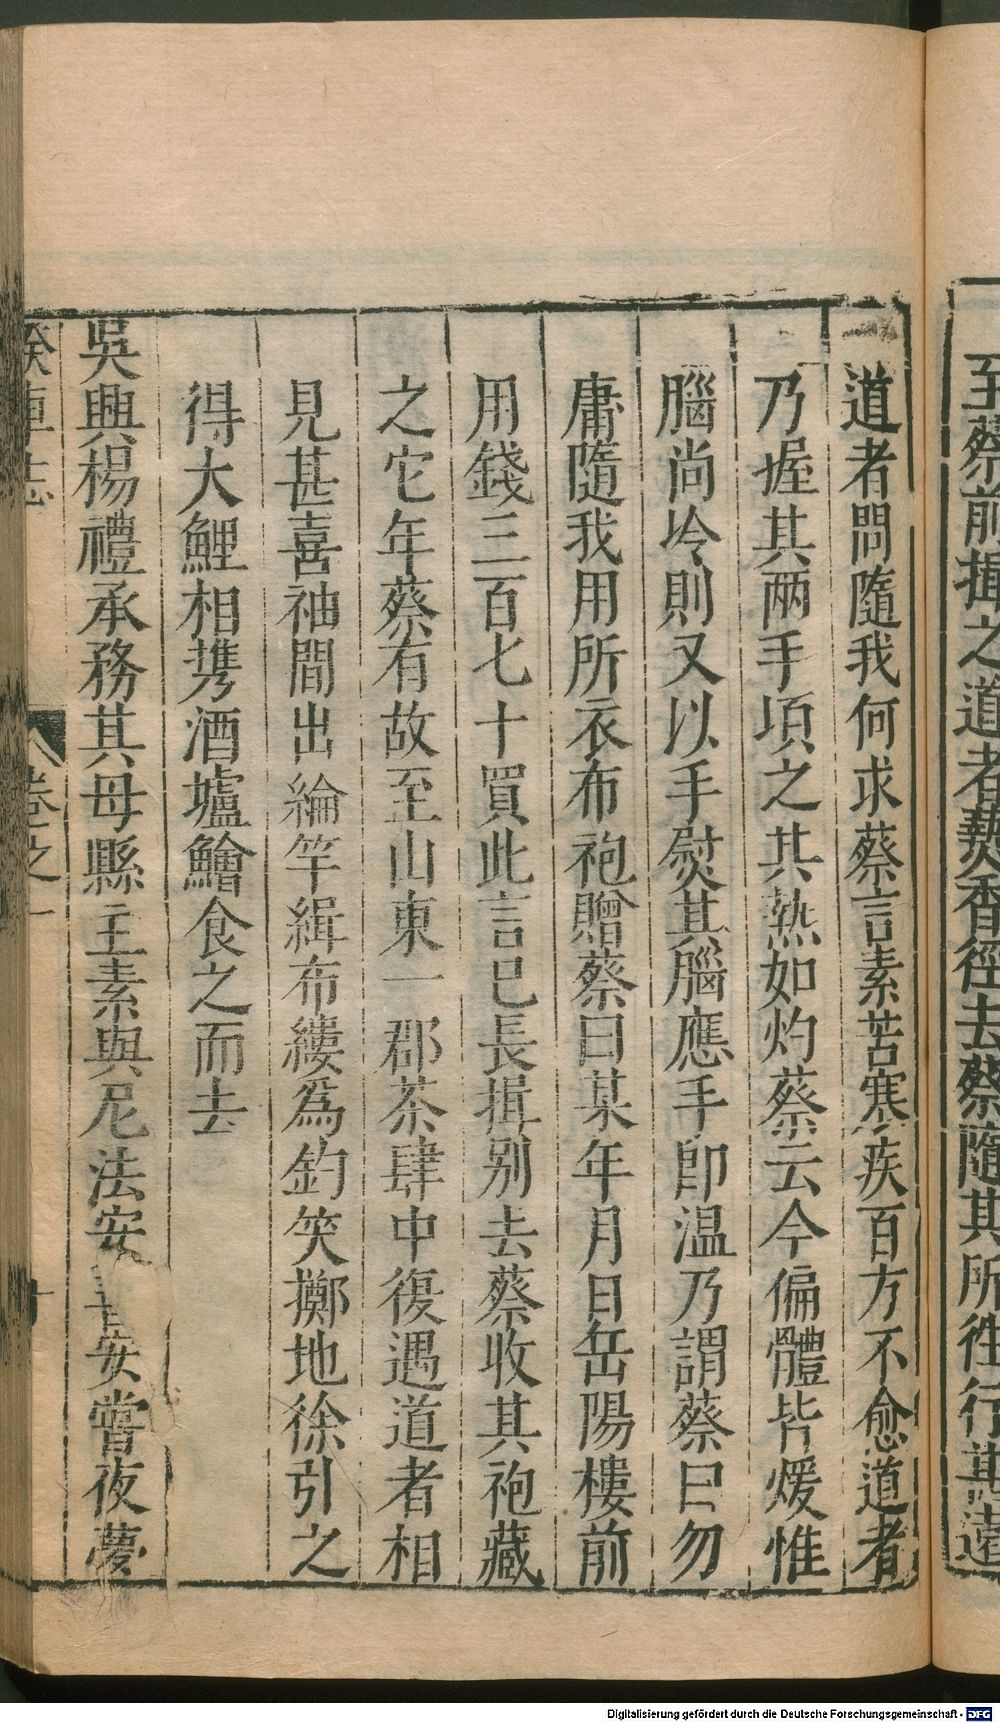 至蔡前揖之道者熱香徑去蔡隨其所徃行甚遠
道者問隨我何求蔡言素苦寒疾百方不愈道者
乃握其兩手項之其熱如灼蔡云今偏體皆煖惟
腦尚坽則又以手熨其腦應手即温乃謂蔡曰勿
庸隨我用所衣布袍贈蔡曰某年月日岳陽樓前
用錢三百七十買此言巳長揖别去蔡收其袍藏
之它年蔡有故至山東一郡茶肆中復遇道者相
見甚喜袖間出綸竿緝布縷爲鈞笑擲地徐引之
得大鯉相携酒壚鱠食之而去
吳興楊禮承務其母縣主素與尼法安善安嘗夜夢
睽車志
卷之一
Digitalisierung gefördert durch die Deutsche Forschungsgemeinschaft - DFG